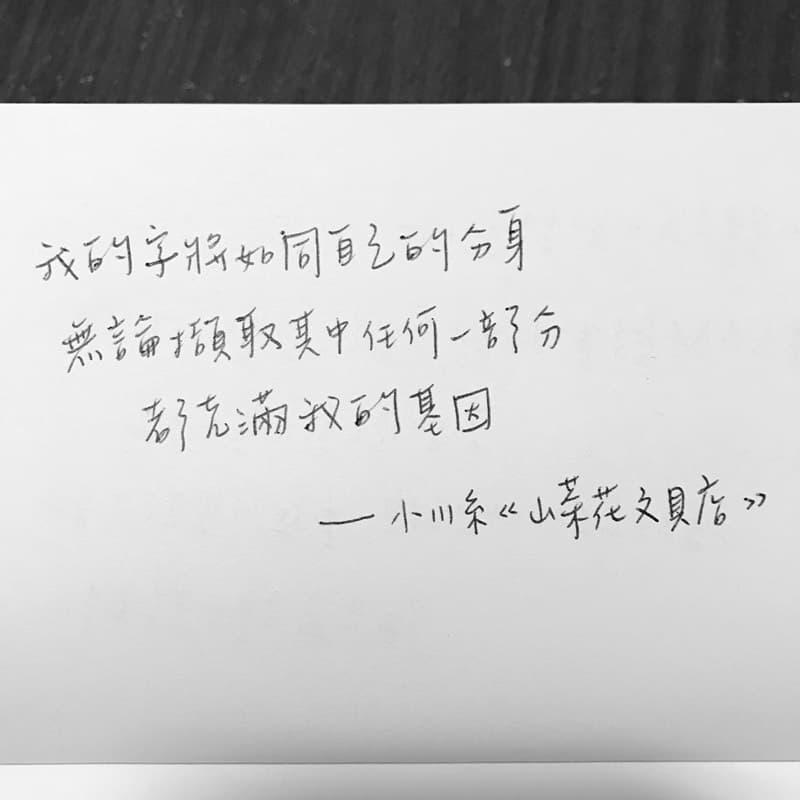 我的字將如同自己的分身
無論擷取其中任何一部分
都充滿我的基因
— 小川糸《山茶花文具店》